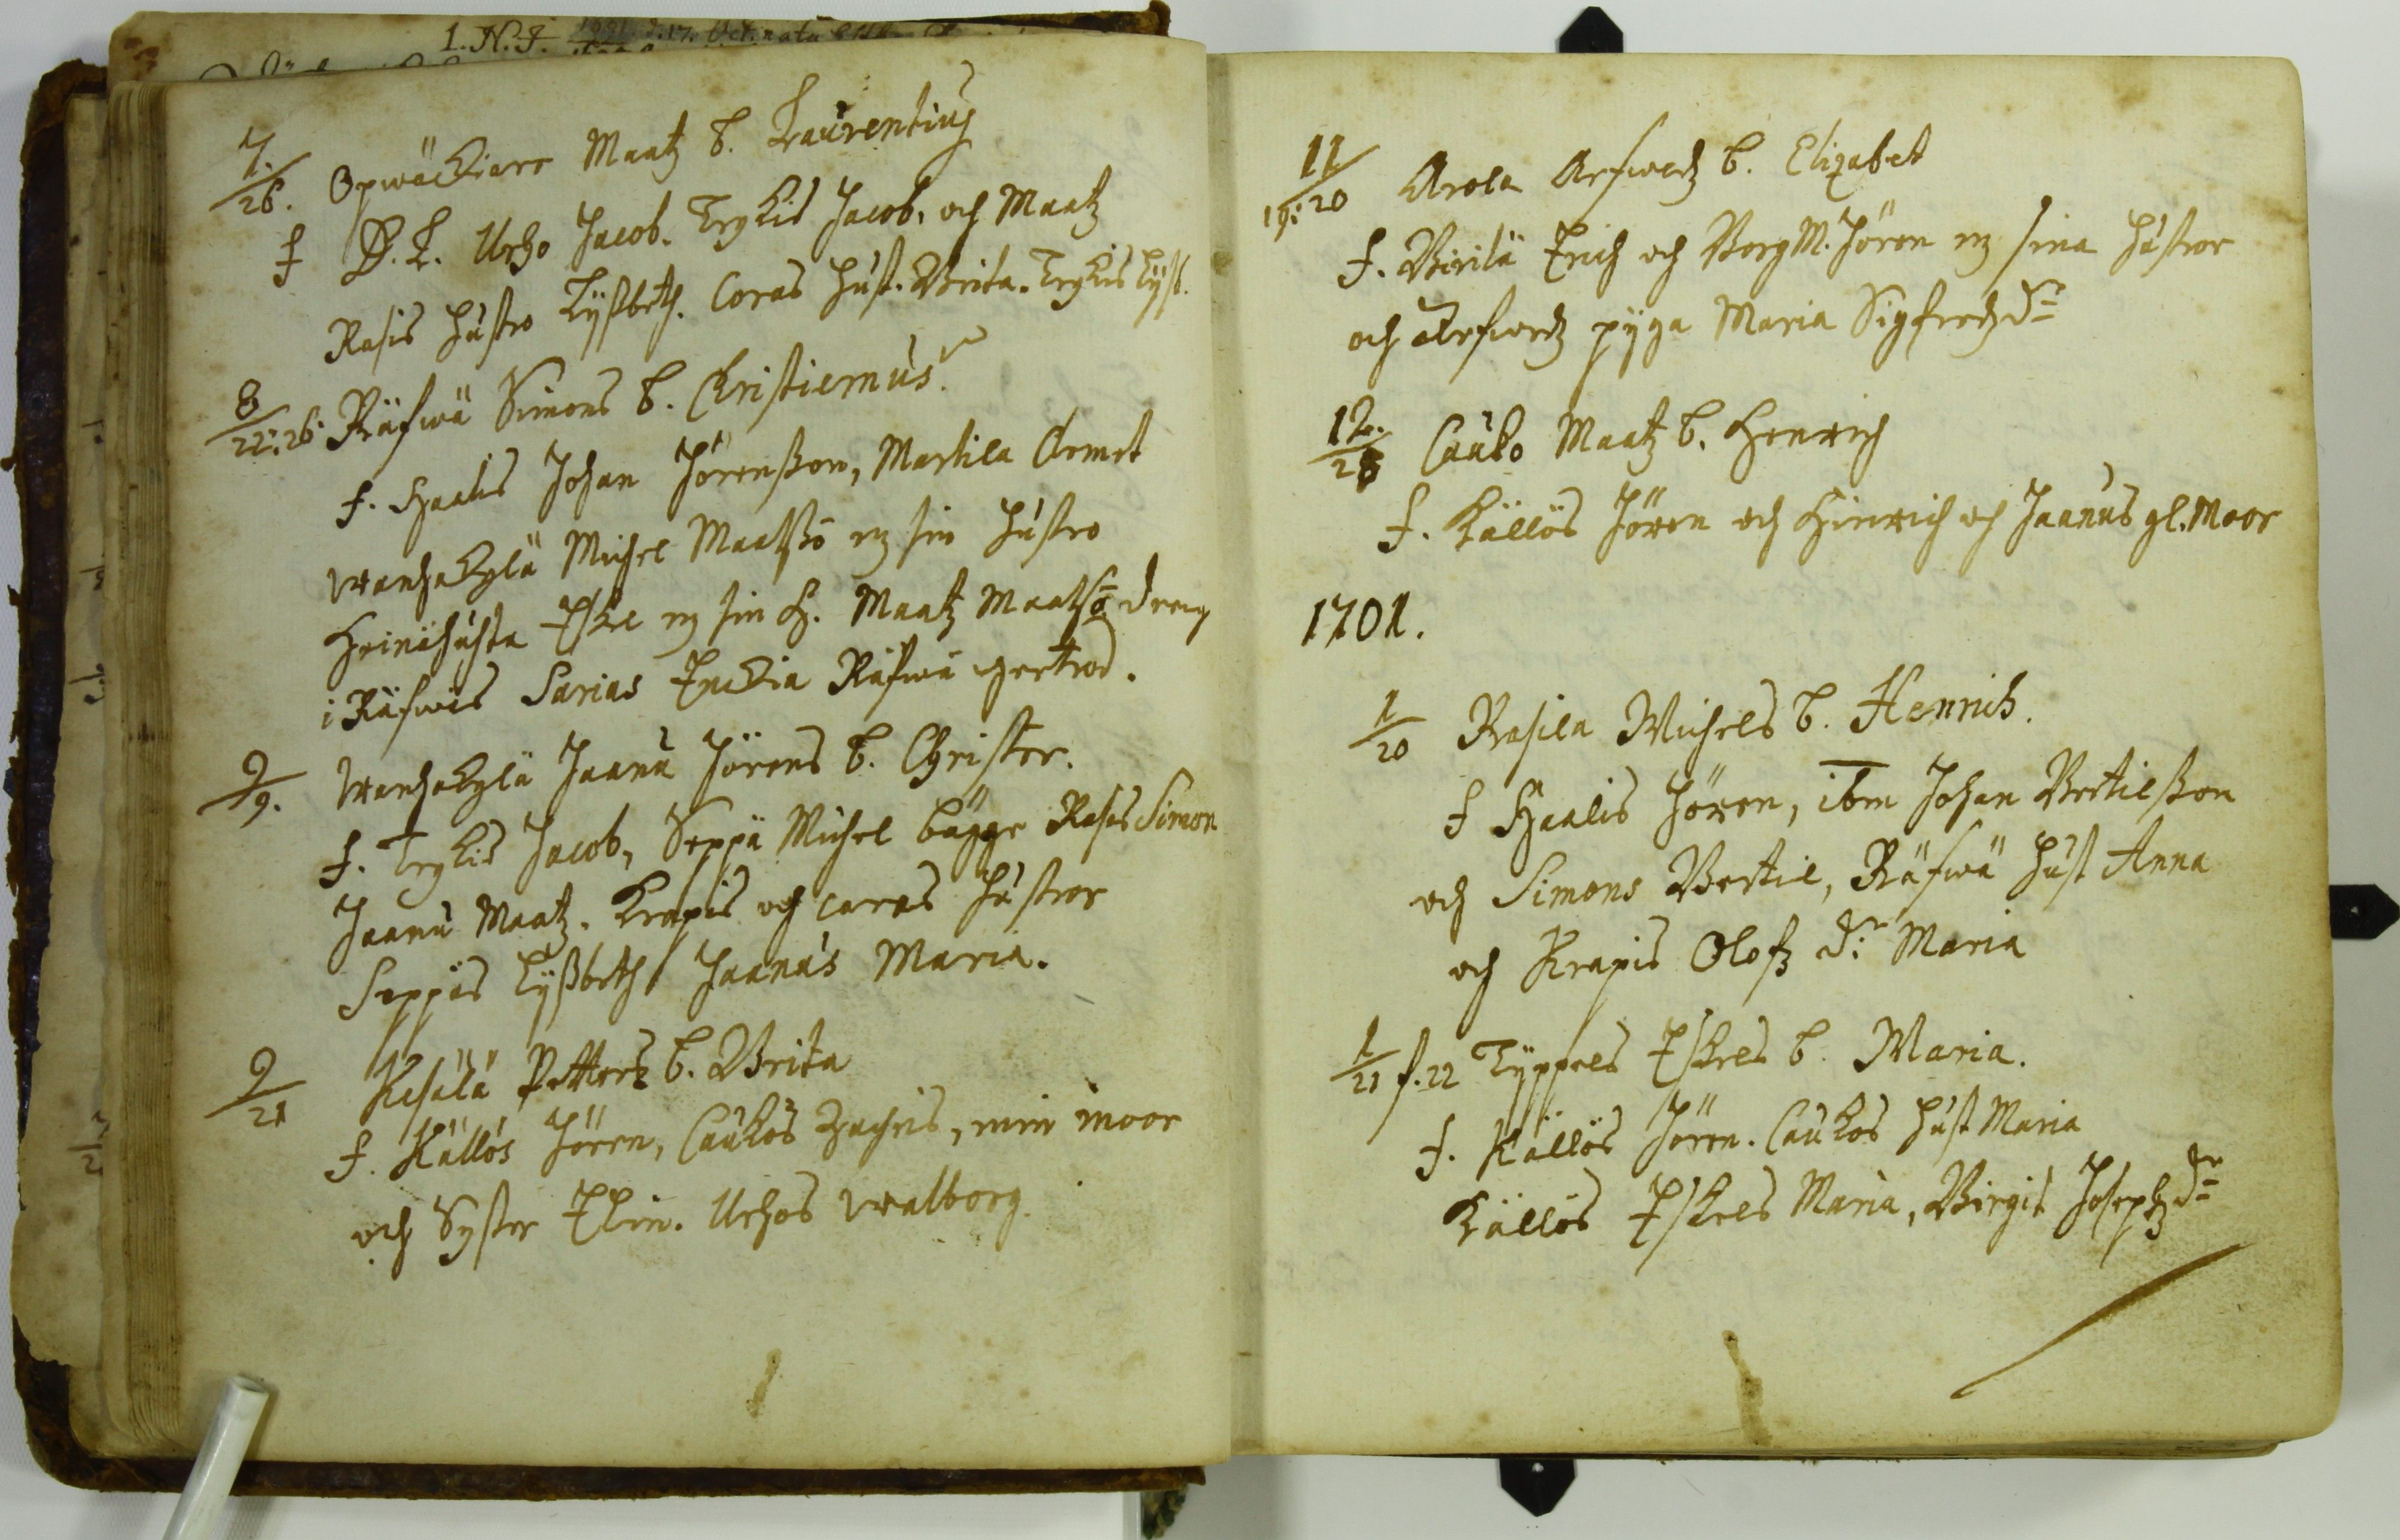 1. N. I.
7./26. Opwäckiare Maatz b. Laurentius
f D. L. Urho Jacob. Trykis Jacob, och Maatz
Rasis hustro Lyßbeth. Coras hust. Brita. Trykis Lyß.
8/22:26: Räfwä Simons b. Christiernus.
f. Haalis Johan Jörenßon, Martila Clemet
wanhakylä Michel Maatßo m sin hustro
Heinähuhta Eskel m sin H. Maatz Maatsso dreng
i Räfwis Sarias Erickia Räfwä gertrod.
9/9. wanhakylä Jaanu Jörens b. Christer.
f. Trykis Jacob, Seppä Michel bägge Rasis Simon
Jaanu Maatz. Krapis och Caras hustror
Seppäs Lyßbeth Jaanus Maria.
9/21 Kesälä Petters b. Brita
f. Källös Jören, Caukos Zachris, min moor
och Syster Elin. Urhos walborg.
11/19:20 Arola Arfwedz b. Elizabet
f. Birilä Erich och Borg M. Jören m sina hustror
och Arfwedz pyga Maria Sigfredz dr
12./28 Cauko Maatz b. Henrich
f. Källös Jören och Hinrich och Jaanus gl. Moor
1701.
1/20 Rasila Michels b. Henrich.
f Haalis Jören, ibm Johan Bertilßon
och Simons Bertil, Räfwä hust Anna
och Krapis Olofz dr Maria
1/21 f. 22 Typpels Eskels b. Maria.
f. Källös Jören. Caukos hust Maria
Källös Eskels Maria, Birgit Josephz dr